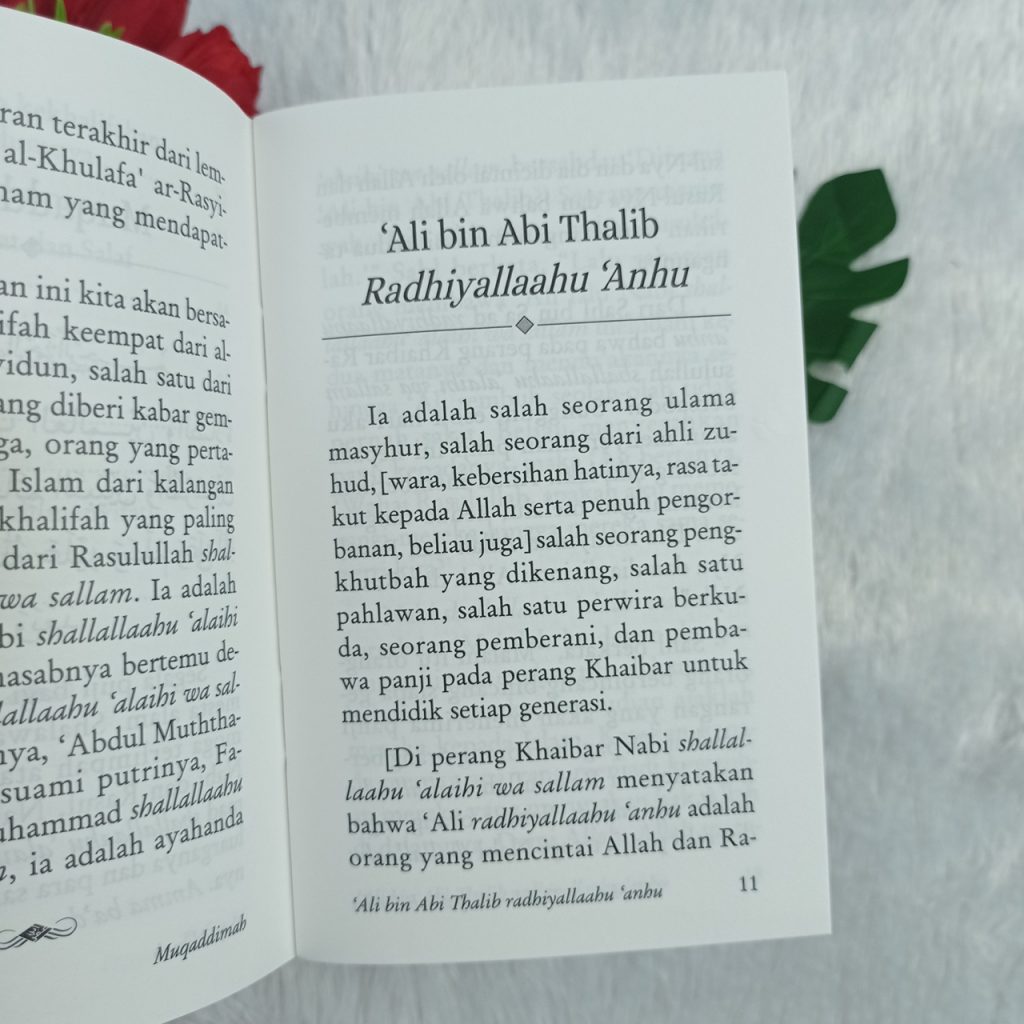 ran terakhir dari lem-
al-Khulafa' ar-Rasyi-
yang mendapat-
ini kita akan bersa-
keempat dari al-
salah satu dari
diberi kabar gem-
orang yang perta-
Islam dari kalangan
khalifah yang paling
dari Rasulullah shal-
wa sallam. Ia adalah
shallallaahu ‘alaihi
bertemu de-
‘alaihi wa sal-
‘Abdul Muththa-
suami putrinya, Fa-
shallallaahu
ia adalah ayahanda
Muqaddimah
‘Ali bin Abi Thalib
Radhiyallaahu ‘Anhu
Ia adalah salah seorang ulama
masyhur, salah seorang dari ahli zu-
hud, [wara, kebersihan hatinya, rasa ta-
kut kepada Allah serta penuh pengor-
banan, beliau juga] salah seorang peng-
khutbah yang dikenang, salah satu
pahlawan, salah satu perwira berku-
da, seorang pemberani, dan pemba-
wa panji pada perang Khaibar untuk
mendidik setiap generasi.
[Di perang Khaibar Nabi shallal-
laahu ‘alaihi wa sallam menyatakan
bahwa ‘Ali radhiyallaahu ‘anhu adalah
orang yang mencintai Allah dan Ra-
‘Ali bin Abi Thalib radhiyallaahu ‘anhu 11